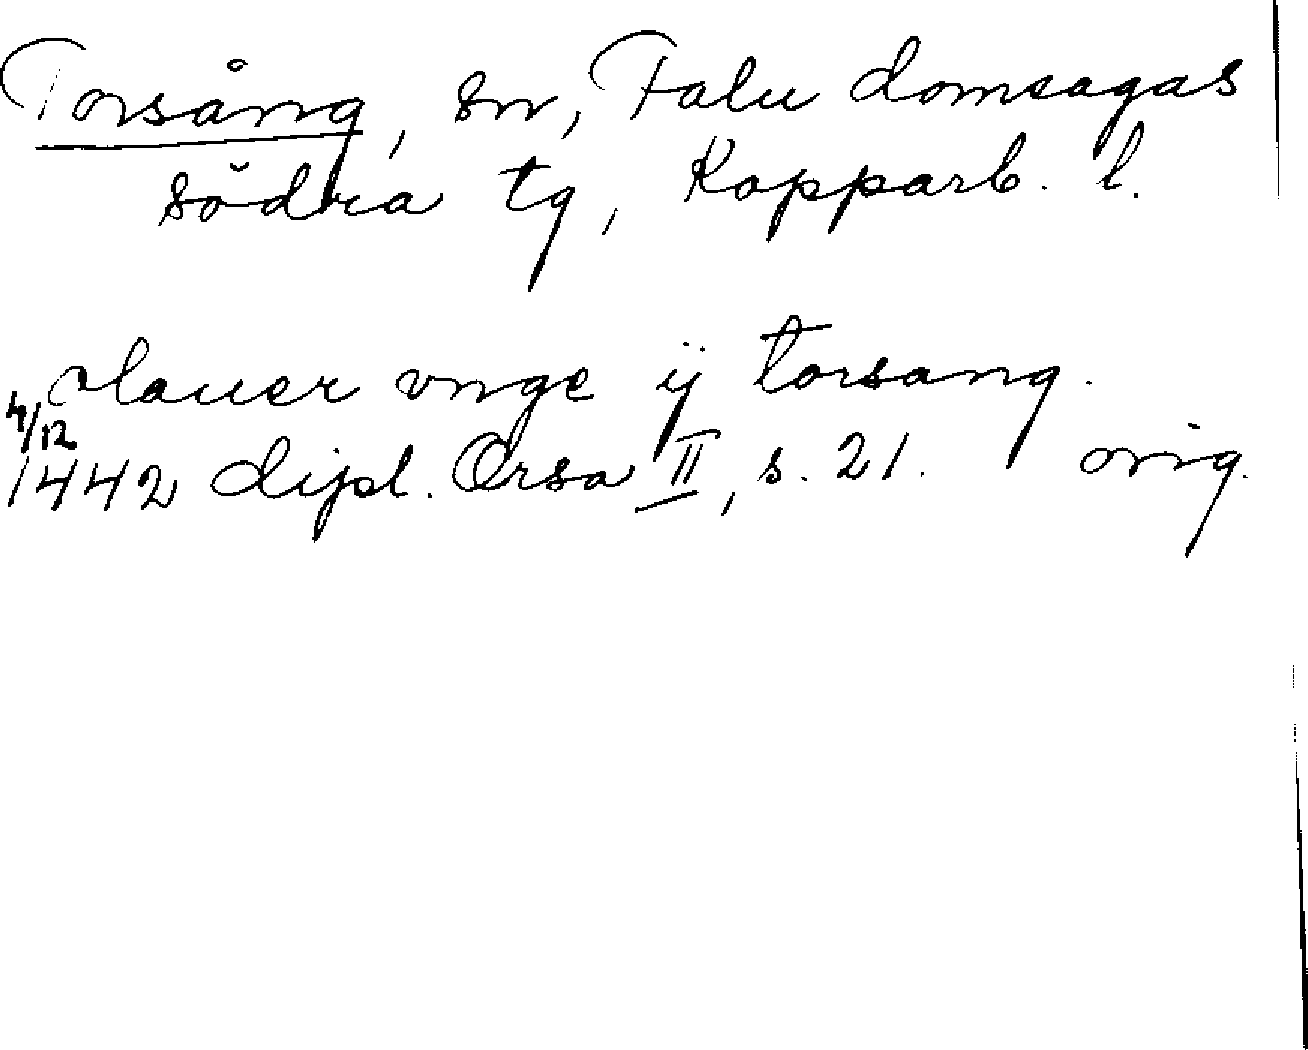 Torsång, sn, Falu domsagas
södra tg, Kopparb. l.
olauer vnge ij torsang.
4/12
1442 dipl. Orsa II, s. 21. orig.